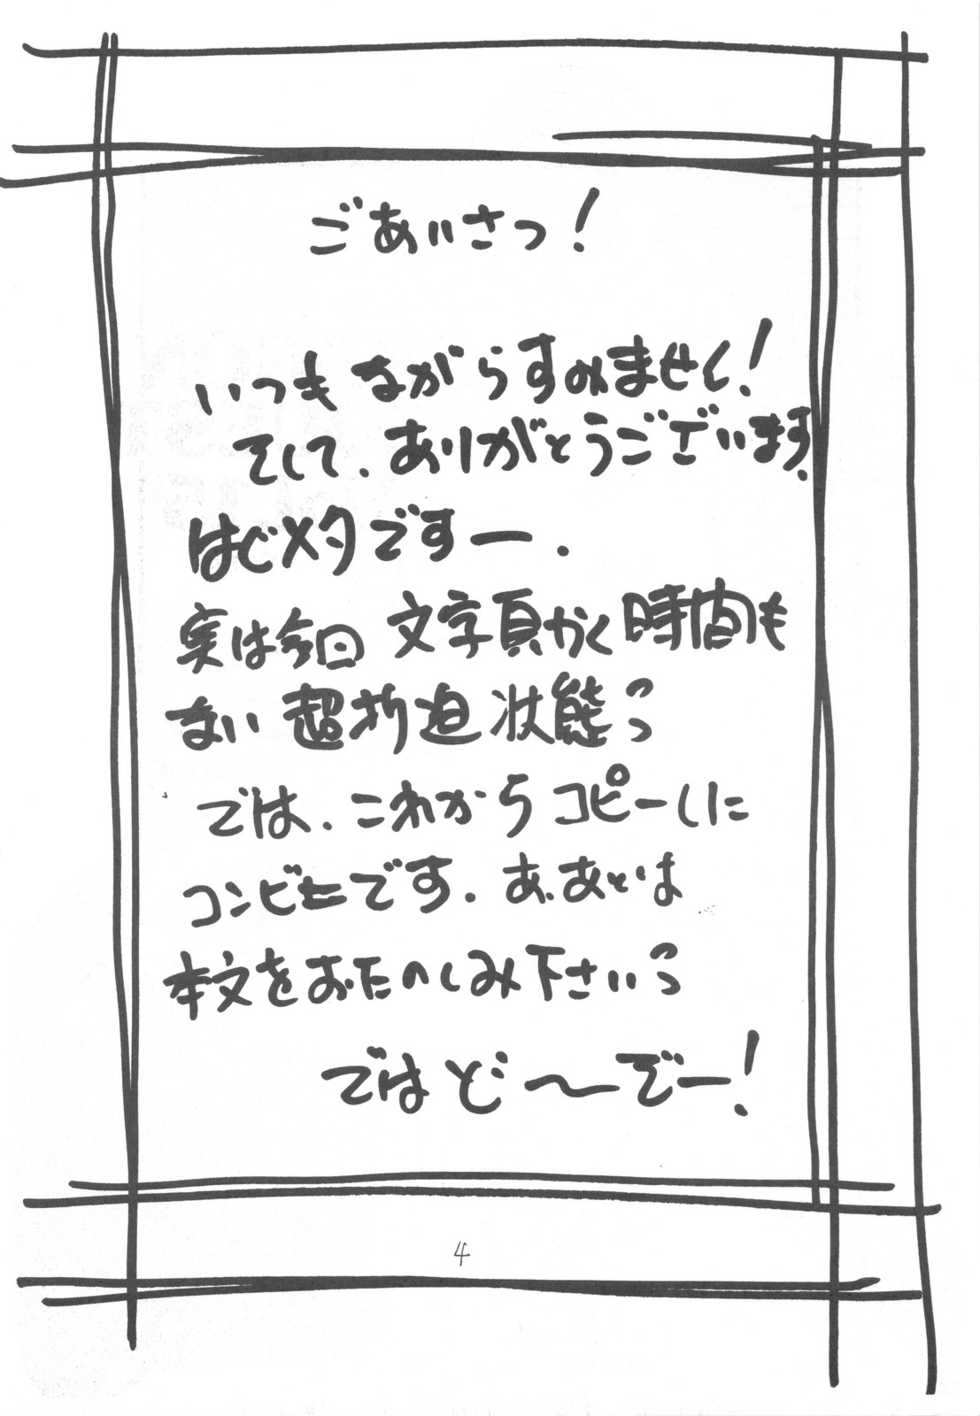 ごあいさつ!
いつもながらすみません!
そして、ありがとうございます.
はじメタですー.
実は今回 文字頁かく時間も
ない 超折迫 状態っ
では、これからコピーしに
コンビニです. あ、あとは
本文をおたのしみ下さいっ
ではど〜ぞー!
4